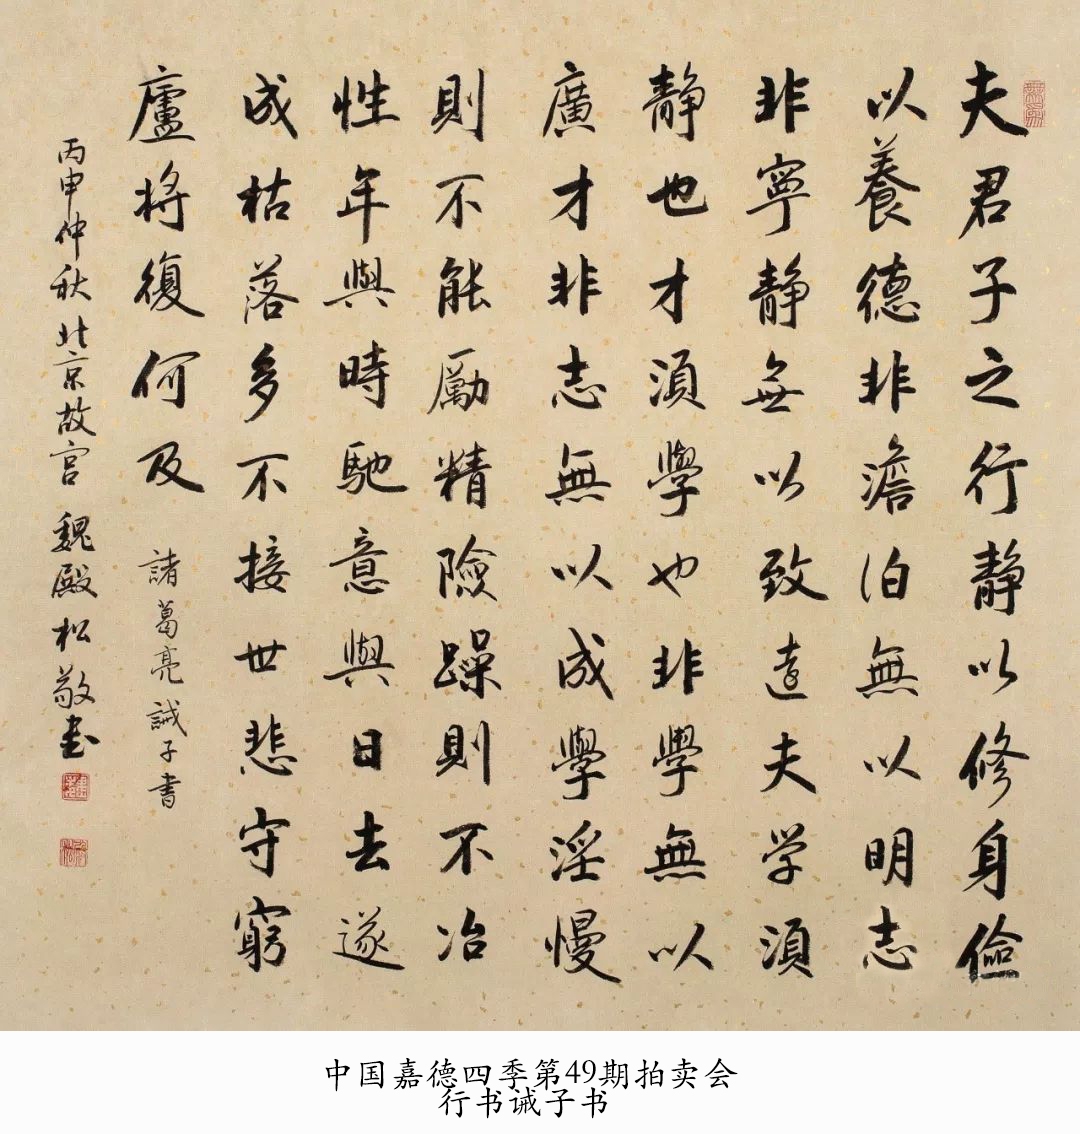 夫君子之行静以修身儉
以養德非澹泊無以明志
非寧静無以致遠夫学須
静也才須學也非學無以
廣才非志無以成學淫慢
則不能勵精險躁則不冶
性年與時馳意與日去遂
成枯落多不接世悲守窮
廬将復何及
諸葛亮誡子書
丙申仲秋北京故宫 魏殿松敬书
中国嘉德四季第49期拍卖会
行书诫子书